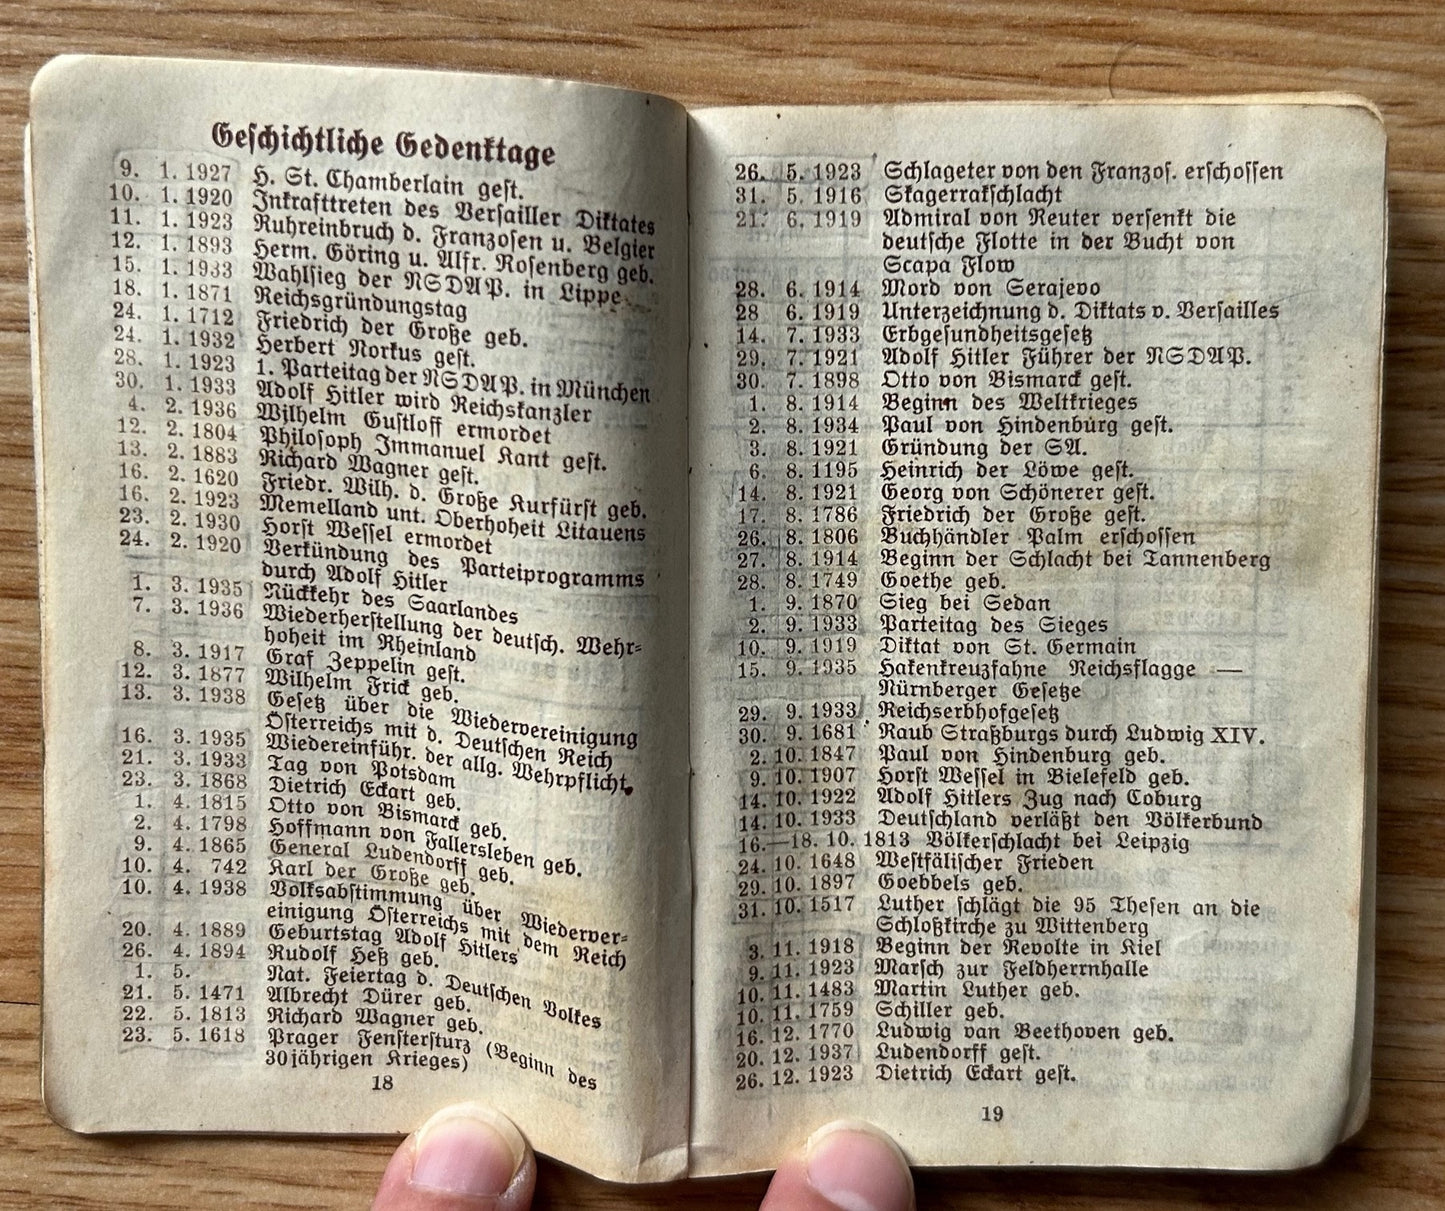 Geschichtliche Gedenktage
9. 1. 1927 H. St. Chamberlain gest.
10. 1. 1920 Inkrafttreten des Versailler Diktates
11. 1. 1923 Ruhreinbruch d. Franzosen u. Belgier
12. 1. 1893 Herm. Göring u. Alfr. Rosenberg geb.
15. 1. 1933 Wahlsieg der NSDAP. in Lippe
18. 1. 1871 Reichsgründungstag
24. 1. 1712 Friedrich der Große geb.
24. 1. 1932 Herbert Norkus gest.
28. 1. 1923 1. Parteitag der NSDAP. in München
30. 1. 1933 Adolf Hitler wird Reichskanzler
4. 2. 1936 Wilhelm Gustloff ermordet
12. 2. 1804 Philosoph Immanuel Kant gest.
13. 2. 1883 Richard Wagner gest.
16. 2. 1620 Friedr. Wilh. d. Große Kurfürst geb.
16. 2. 1923 Memelland unt. Oberhoheit Litauens
23. 2. 1930 Horst Wessel ermordet
24. 2. 1920 Verkündung des Parteiprogramms
durch Adolf Hitler
1. 3. 1935 Rückkehr des Saarlandes
7. 3. 1936 Wiederherstellung der deutsch. Wehr-
hoheit im Rheinland
8. 3. 1917 Graf Zeppelin gest.
12. 3. 1877 Wilhelm Frick geb.
13. 3. 1938 Gesetz über die Wiedervereinigung
Österreichs mit d. Deutschen Reich
16. 3. 1935 Wiedereinführ. der allg. Wehrpflicht.
21. 3. 1933 Tag von Potsdam
23. 3. 1868 Dietrich Eckart geb.
1. 4. 1815 Otto von Bismarck geb.
2. 4. 1798 Hoffmann von Fallersleben geb.
9. 4. 1865 General Ludendorff geb.
10. 4. 742 Karl der Große geb.
10. 4. 1938 Volksabstimmung über Wiederver-
einigung Österreichs mit dem Reich
20. 4. 1889 Geburtstag Adolf Hitlers
26. 4. 1894 Rudolf Heß geb.
1. 5. Nat. Feiertag d. Deutschen Volkes
21. 5. 1471 Albrecht Dürer geb.
22. 5. 1813 Richard Wagner geb.
23. 5. 1618 Prager Fenstersturz (Beginn des
30jährigen Krieges)
18
26. 5. 1923 Schlageter von den Franzos. erschossen
31. 5. 1916 Skagerrakschlacht
21. 6. 1919 Admiral von Reuter versenkt die
deutsche Flotte in der Bucht von
Scapa Flow
28. 6. 1914 Mord von Serajevo
28 6. 1919 Unterzeichnung d. Diktats v. Versailles
14. 7. 1933 Erbgesundheitsgesetz
29. 7. 1921 Adolf Hitler Führer der NSDAP.
30. 7. 1898 Otto von Bismarck gest.
1. 8. 1914 Beginn des Weltkrieges
2. 8. 1934 Paul von Hindenburg gest.
3. 8. 1921 Gründung der SA.
6. 8. 1195 Heinrich der Löwe gest.
14. 8. 1921 Georg von Schönerer gest.
17. 8. 1786 Friedrich der Große gest.
26. 8. 1806 Buchhändler Palm erschossen
27. 8. 1914 Beginn der Schlacht bei Tannenberg
28. 8. 1749 Goethe geb.
1. 9. 1870 Sieg bei Sedan
2. 9. 1933 Parteitag des Sieges
10. 9. 1919 Diktat von St. Germain
15. 9. 1935 Hakenkreuzfahne Reichsflagge —
Nürnberger Gesetze
29. 9. 1933 Reichserbhofgesetz
30. 9. 1681 Raub Straßburgs durch Ludwig XIV.
2. 10. 1847 Paul von Hindenburg geb.
9. 10. 1907 Horst Wessel in Bielefeld geb.
14. 10. 1922 Adolf Hitlers Zug nach Coburg
14. 10. 1933 Deutschland verläßt den Völkerbund
16.—18. 10. 1813 Völkerschlacht bei Leipzig
24. 10. 1648 Westfälischer Frieden
29. 10. 1897 Goebbels geb.
31. 10. 1517 Luther schlägt die 95 Thesen an die
Schloßkirche zu Wittenberg
3. 11. 1918 Beginn der Revolte in Kiel
9. 11. 1923 Marsch zur Feldherrnhalle
10. 11. 1483 Martin Luther geb.
10. 11. 1759 Schiller geb.
16. 12. 1770 Ludwig van Beethoven geb.
20. 12. 1937 Ludendorff gest.
26. 12. 1923 Dietrich Eckart gest.
19